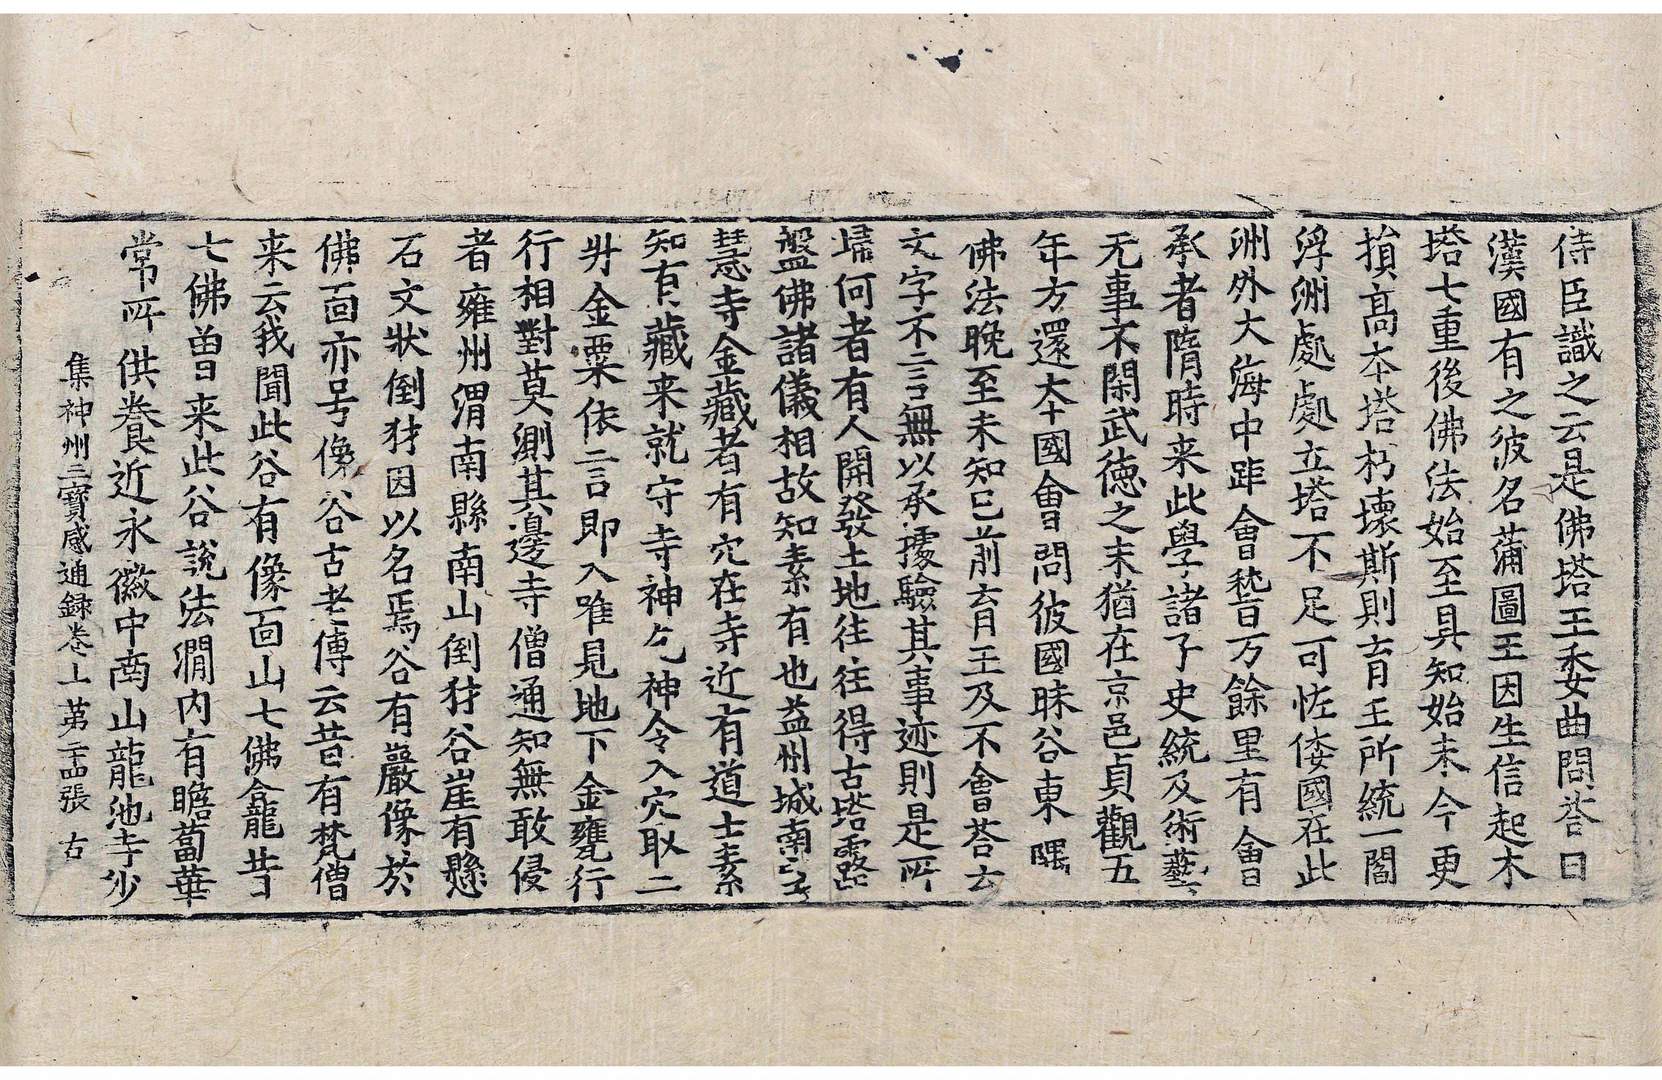 侍臣識之云是佛塔王委曲問荅曰
漢國有之彼名蒲圖王因生信起木
塔七重後佛法始至具知始末今更
損高本塔朽壞斯則育王所統一閻
浮洲處處立塔不足可恠倭國在此
洲外大海中距會稽万餘里有會
承者隋時来此學諸子史統及術藝
无事不閑武德之末猶在京邑貞觀五
年方還本國會問彼國昧谷東隅
佛法晚至未知已前育王及不會荅云
文字不言無以承據驗其事迹則是所
歸何者有人開發土地往往得古塔露
盤佛諸儀相故知素有也益州城南空
慧寺金藏者有穴在寺近有道士素
知有藏来就守寺神乞神令入穴取二
升金粟依言即入唯見地下金甕行
行相對莫測其邊寺僧通知無敢侵
者雍州渭南縣南山倒豺谷崖有懸
石文状倒豺因以名焉谷有巖像於
佛面亦号像谷古老傳云昔有梵僧
来云我聞此谷有像面山七佛龕昔
七佛曽来此谷說法澗内有瞻蔔華
常所供養近永徽中南山龍池寺沙
集神州三寶感通録卷上 第二十四張 右